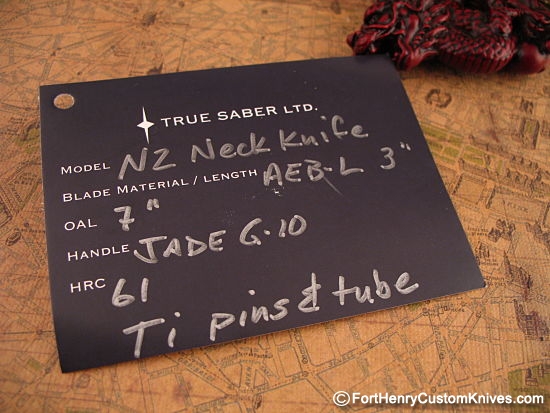 TRUE SABER LTD.
MODEL NZ Neck Knife
BLADE MATERIAL / LENGTH AEB-L 3"
OAL 7"
HANDLE JADE G-10
HRC 61
Ti pins & tube
©FortHenryCustomKnives.com